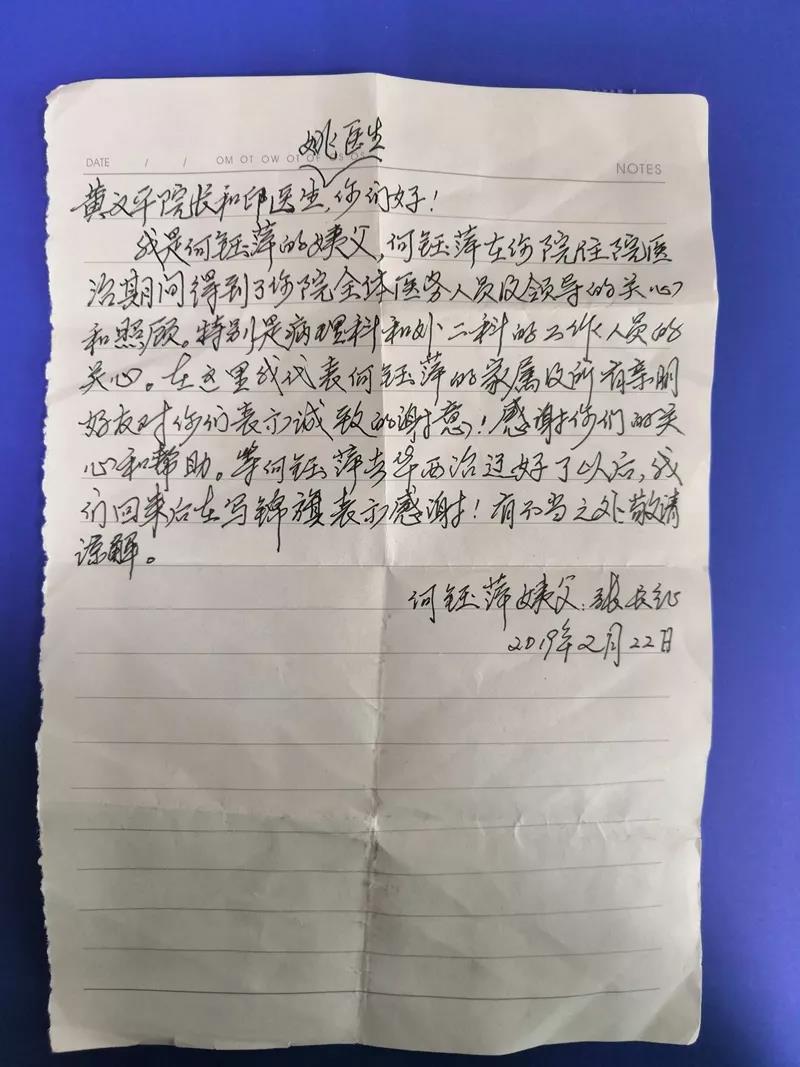 姚医生
DATE / / MO TU WE TH FR SA SU
NOTES
黄文平院长和邱医生,你们好!
我是何钰萍的姨父,何钰萍在你院住院医
治期间得到了你院全体医务人员及领导的关心
和照顾。特别是病理科和外二科的工作人员的
关心。在这里我代表何钰萍的家属及所有亲朋
好友对你们表示诚致的谢意!感谢你们的关
心和帮助。等何钰萍去华西治过好了以后,我
们回来后在写锦旗表示感谢!有不当之处敬请
谅解。
何钰萍姨父:张长征
2019年2月22日